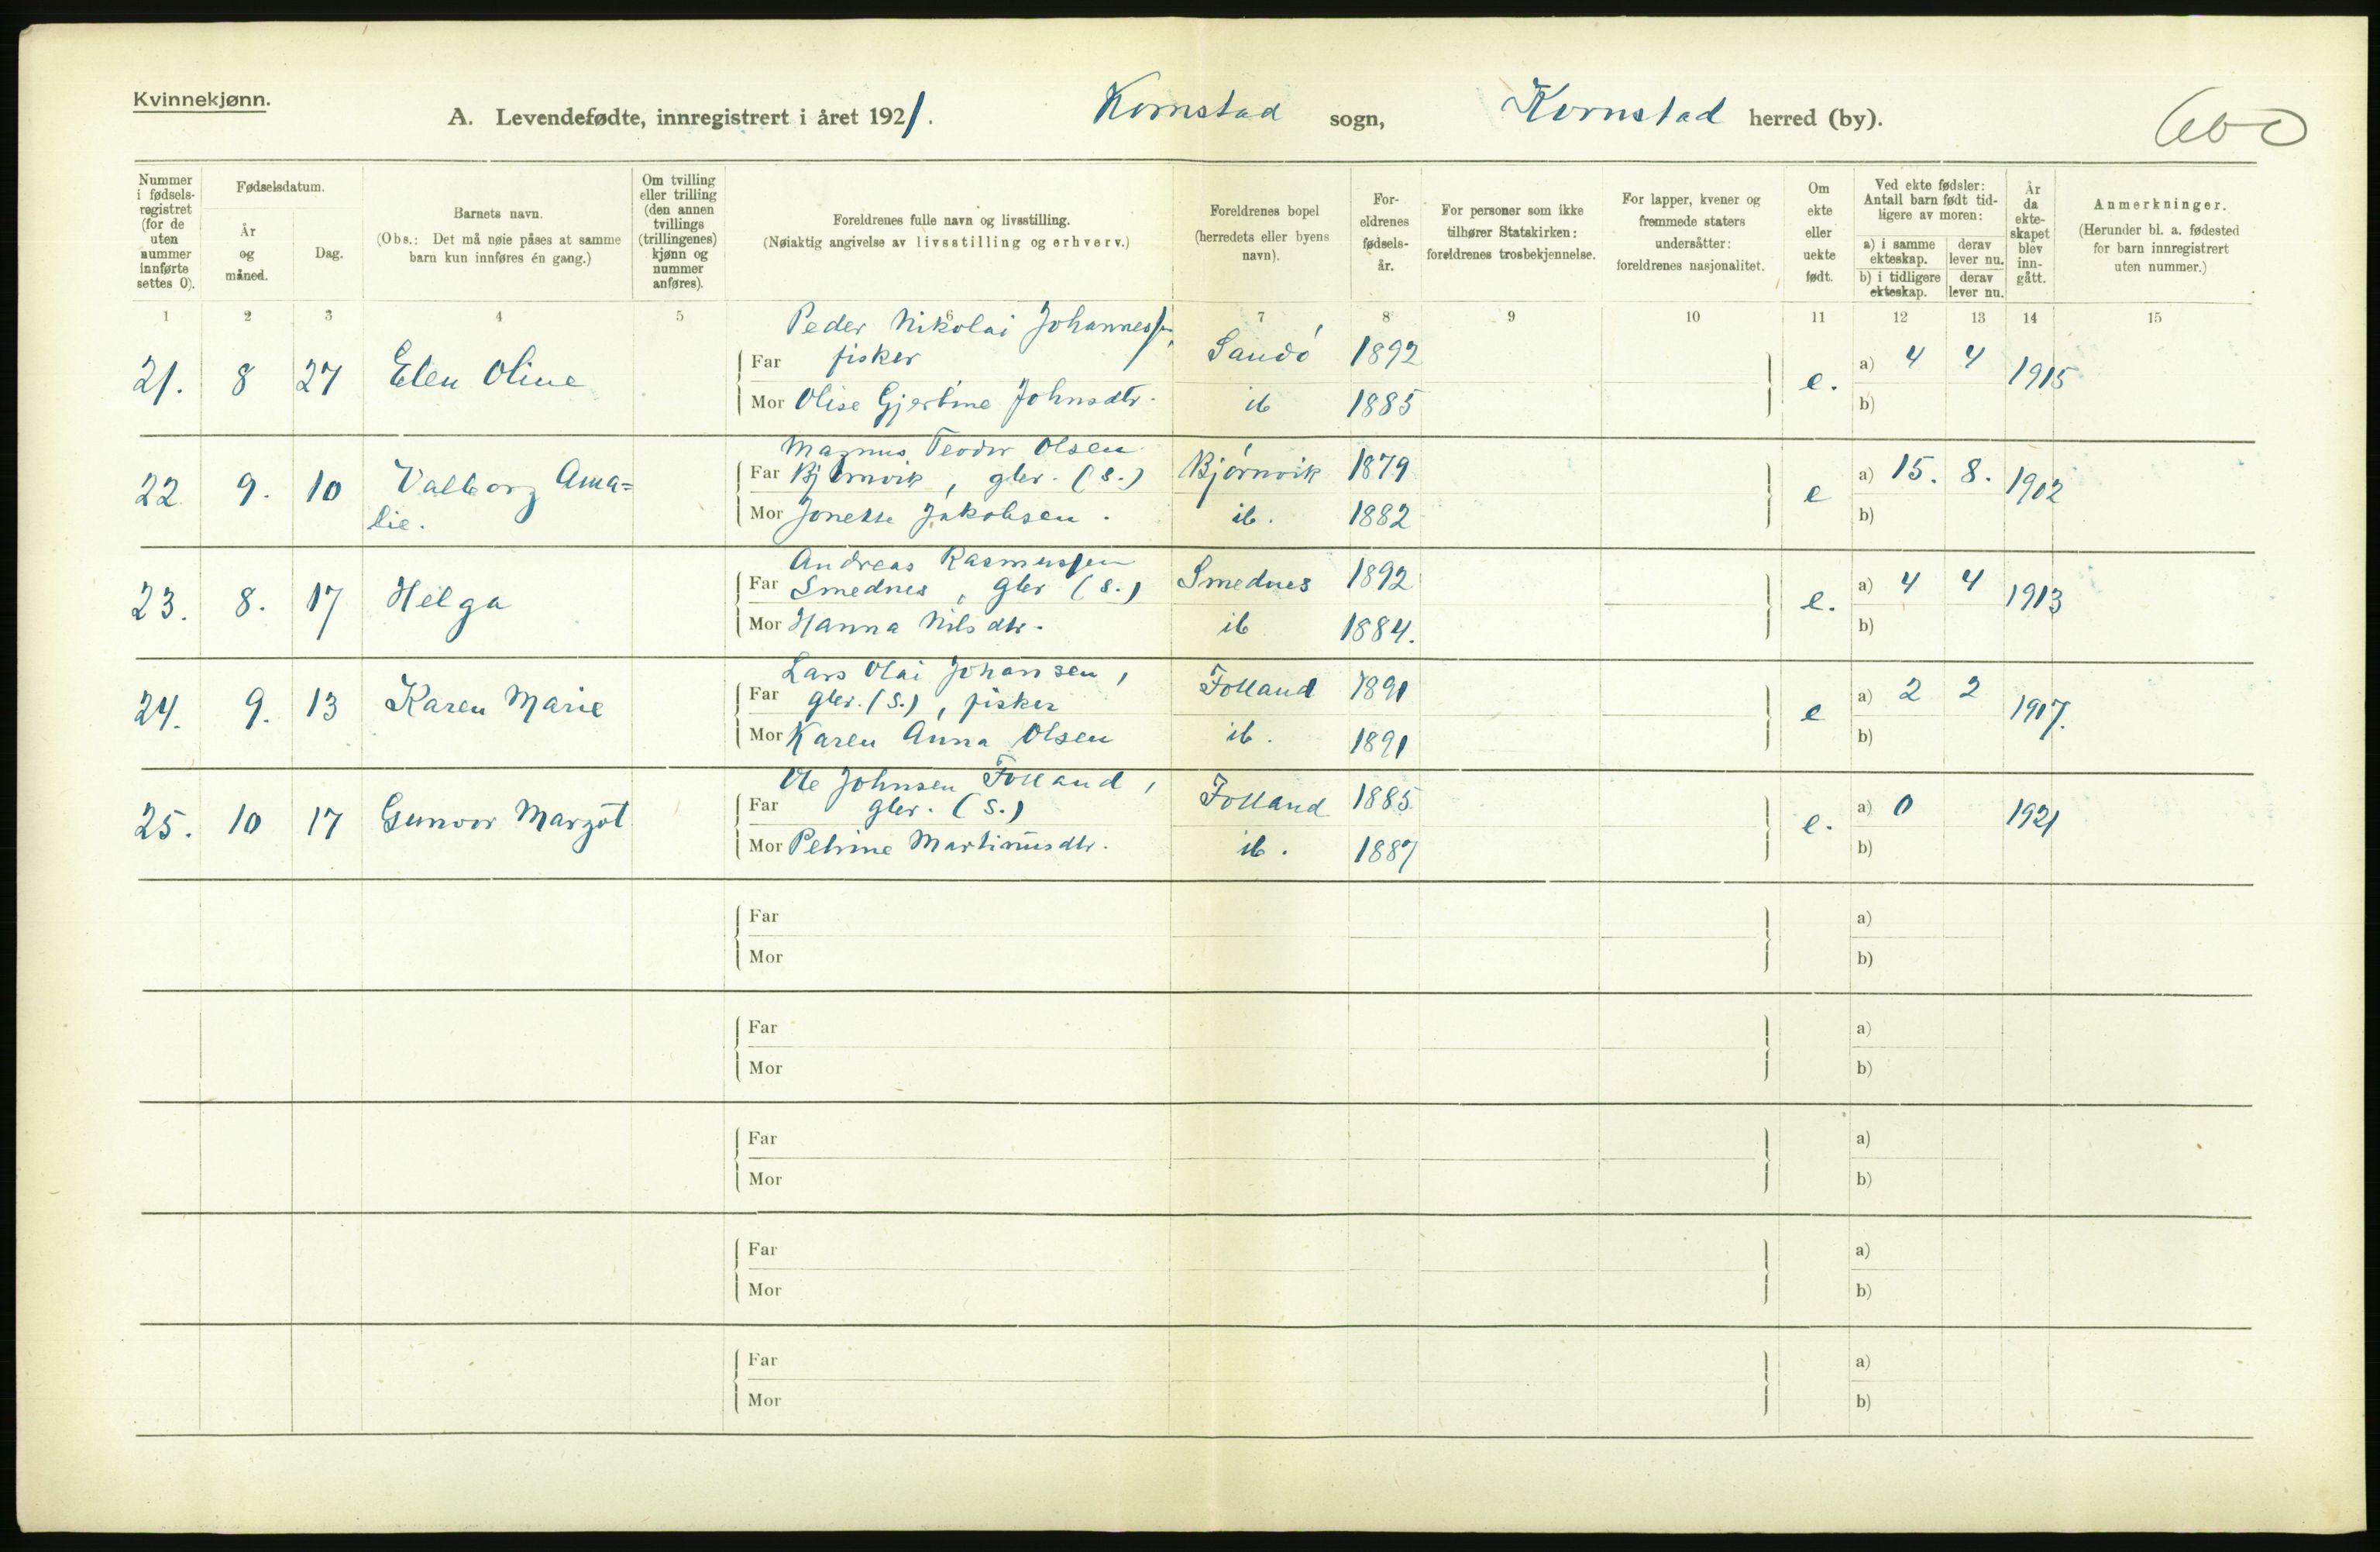 Kvinnekjønn.
A. Levendefødte, innregistrert i året 1921. Kornstad sogn, Kornstad herred (by).
600
Nummer i fødsels-registret (for de uten nummer innførte settes 0).
Fødselsdatum.
År og måned.
Dag.
Barnets navn.
(Obs.: Det må nøie påses at samme barn kun innføres én gang.)
Om tvilling eller trilling (den annen tvillings (trillingenes) kjønn og nummer anføres).
Foreldrenes fulle navn og livsstilling.
(Nøiaktig angivelse av livsstilling og erhverv.)
Foreldrenes bopel (herredets eller byens navn).
For-eldrenes fødsels-år.
For personer som ikke tilhører Statskirken: foreldrenes trosbekjennelse.
For lapper, kvener og fremmede staters undersåtter: foreldrenes nasjonalitet.
Om ekte eller uekte født.
Ved ekte fødsler: Antall barn født tid-ligere av moren:
a) i samme ekteskap. derav lever nu.
b) i tidligere ekteskap. derav lever nu.
År da ekte-skapet blev inn-gått.
Anmerkninger.
(Herunder bl. a. fødested for barn innregistrert uten nummer.)
1 2 3 4 5 6 7 8 9 10 11 12 13 14 15
Peder Nikolai Johannessen,
21. 8 27 Elen Oline Far fisker Sandö 1892 e. a) 4 4 1915
Mor Olise Gjertine Johnsdtr. ib 1885 b)
Magnus Teodor Olsen
22 9. 10 Valborg Ama= Far Bjørnvik, gbr. (S.) Bjórnvik 1879 e a) 15. 8. 1902
lie. Mor Jonette Jakobsen. ib. 1882 b)
Andreas Rasmussen
23. 8. 17 Helga Far Smednes, gbr (S.) Smednes 1892 e. a) 4 4 1913
Mor Hanna Nilsdtr. ib 1884. b)
Lars Olai Johansen,
24. 9. 13 Karen Marie Far gbr. (S.), fisker Folland 1891 e a) 2 2 1917.
Mor Karen Anna Olsen ib. 1891 b)
Ole Johnsen Folland,
25. 10 17 Gunvor Margot Far gbr. (S.) Folland 1885 e. a) 0 1921
Mor Petrine Martinusdtr. ib. 1887 b)
Far a)
Mor b)
Far a)
Mor b)
Far a)
Mor b)
Far a)
Mor b)
Far a)
Mor b)